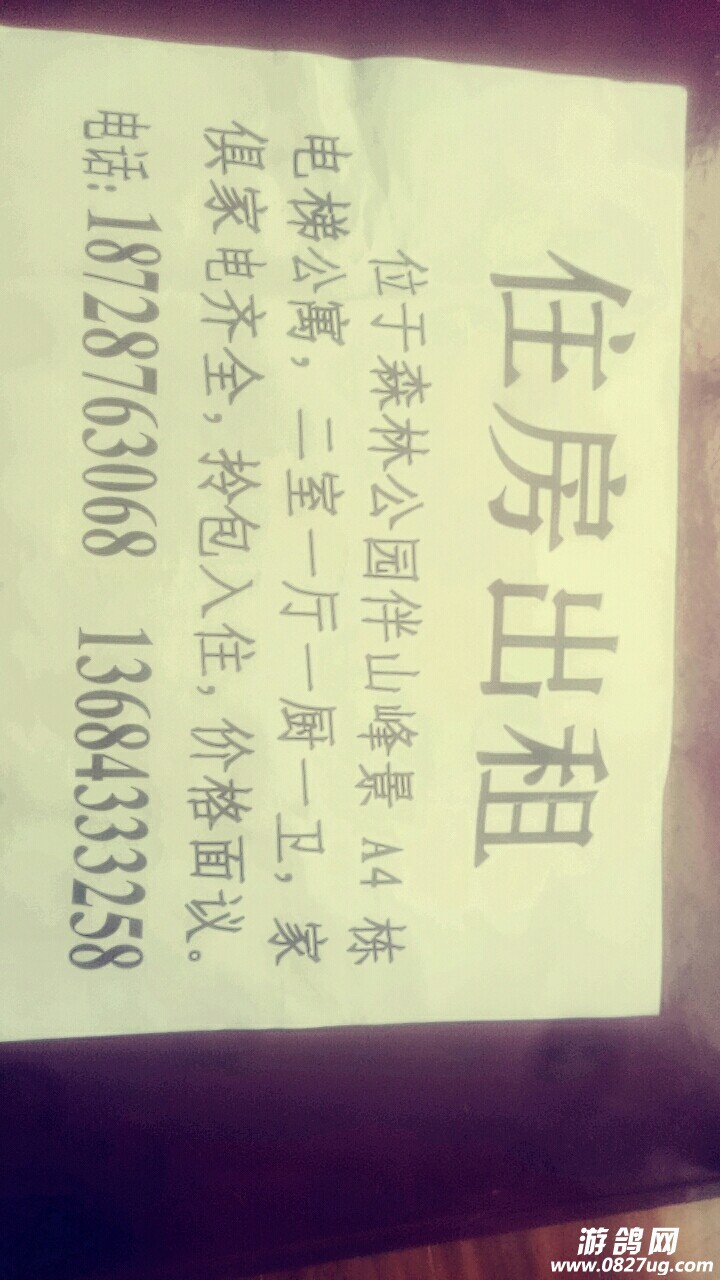 住房出租
位于森林公园伴山峰景 A4 栋
电梯公寓，二室一厅一厨一卫，家
俱家电齐全，拎包入住，价格面议。
电话：18728763068 13684333258
游鸽网
www.0827ug.com